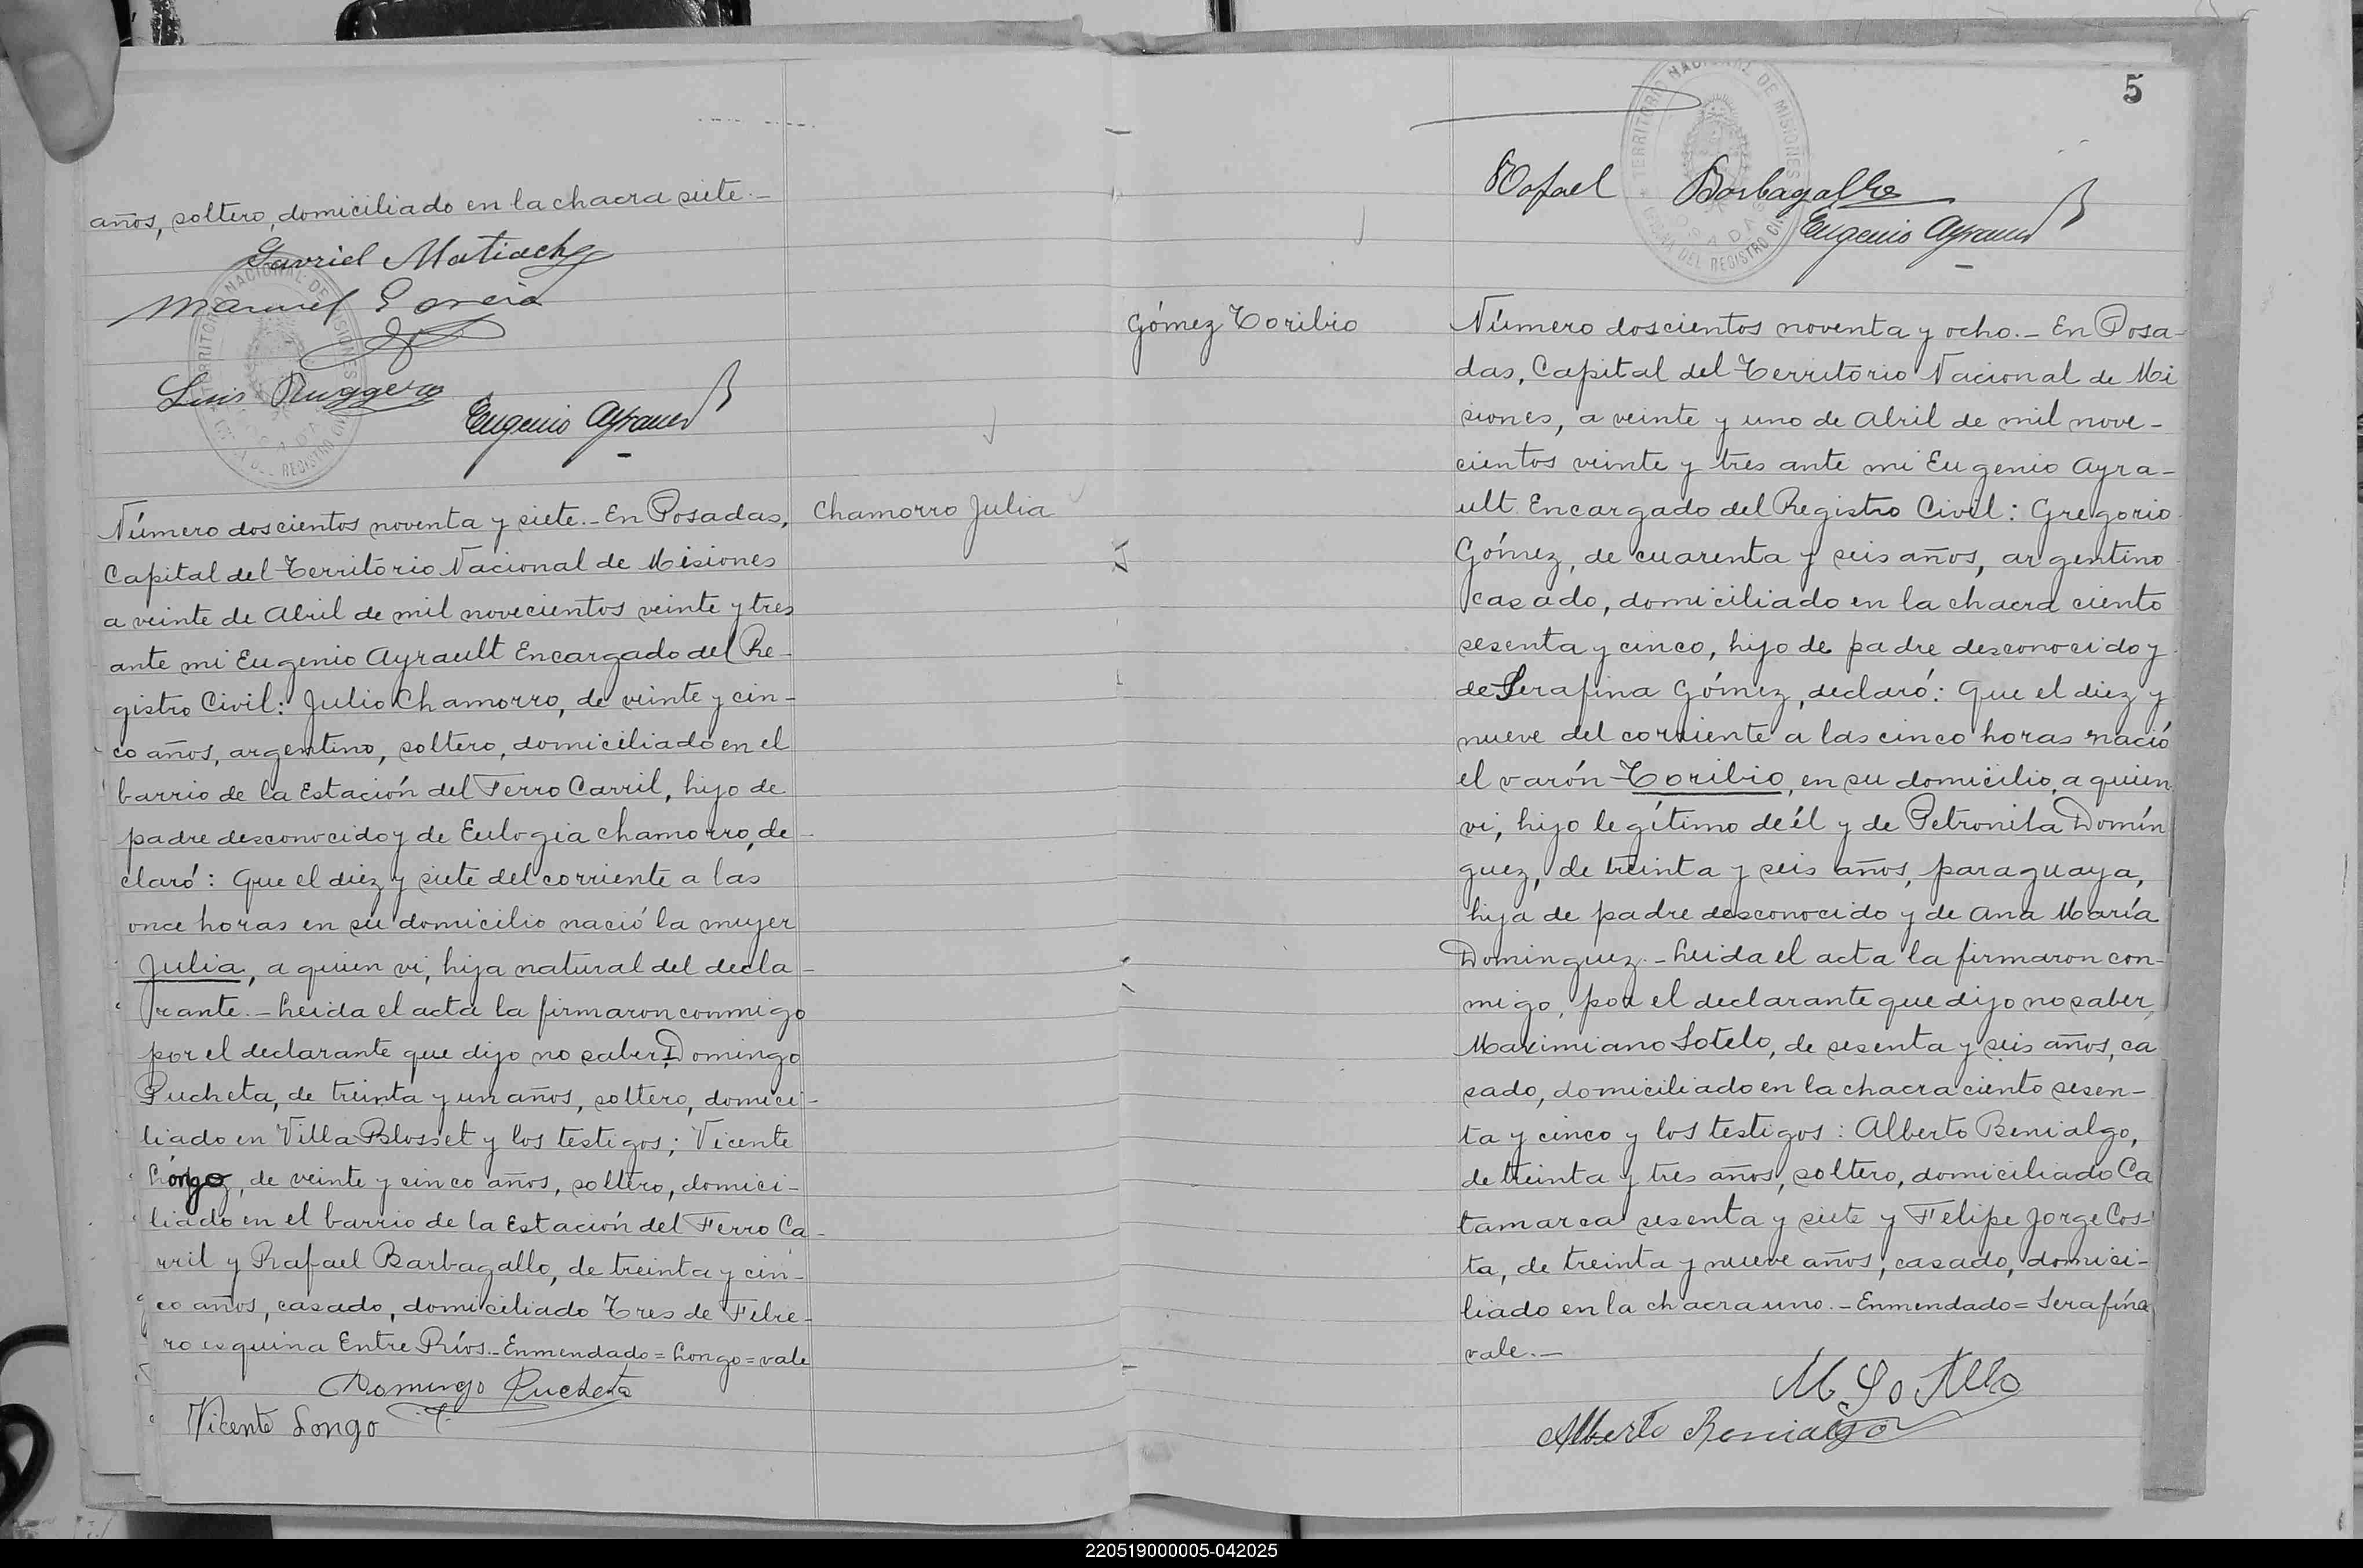 años, soltero, domiciliado en la chacra siete.-
Gavriel Matiach
Manuel Garcia
Luis Ruggero
Eugenio Ayrault
Número doscientos noventa y siete.- En Posadas,
Chamorro Julia
Capital del Territorio Nacional de Misiones
a veinte de Abril de mil novecientos veinte y tres
ante mi Eugenio Ayrault Encargado del Re-
gistro Civil: Julio Chamorro, de veinte y cin-
co años, argentino, soltero, domiciliado en el
barrio de la Estación del Ferro Carril, hijo de
padre desconocido y de Eulogia Chamorro, de-
claró: Que el diez y siete del corriente a las
once horas en su domicilio nació la mujer
Julia, a quien vi, hija natural del decla-
rante.- Leida el acta la firmaron conmigo
por el declarante que dijo no saber, Domingo
Pucheta, de treinta y un años, soltero, domici-
liado en Villa Blosset y los testigos; Vicente
Longo, de veinte y cinco años, soltero, domici-
liado en el barrio de la Estación del Ferro Ca-
rril y Rafael Barbagallo, de treinta y cin-
co años, casado, domiciliado Tres de Febre-
ro esquina Entre Ríos.- Enmendado = Longo = vale
Domingo Pucheta
Vicente Longo
5
TERRITORIO NACIONAL DE MISIONES
POSADAS
OFICINA DEL REGISTRO CIVIL
Rafael Barbagallo
Eugenio Ayrault
Gómez Toribio
Número doscientos noventa y ocho.- En Posa-
das, Capital del Territorio Nacional de Mi
siones, a veinte y uno de Abril de mil nove-
cientos veinte y tres ante mi Eugenio Ayra-
ult Encargado del Registro Civil: Gregorio
Gómez, de cuarenta y seis años, argentino
casado, domiciliado en la chacra ciento
sesenta y cinco, hijo de padre desconocido y
de Serafina Gómez, declaró: Que el diez y
nueve del corriente a las cinco horas nació
el varón Toribio, en su domicilio, a quien
vi, hijo legítimo de él y de Petronila Domín
guez, de treinta y seis años, paraguaya,
hija de padre desconocido y de Ana María
Dominguez.- Leida el acta la firmaron con-
migo, por el declarante que dijo no saber,
Maximiano Sotelo, de sesenta y seis años, ca
sado, domiciliado en la chacra ciento sesen-
ta y cinco y los testigos: Alberto Benialgo,
de treinta y tres años, soltero, domiciliado Ca
tamarca sesenta y siete y Felipe Jorge Cos-
ta, de treinta y nueve años, casado, domici-
liado en la chacra uno.- Enmendado = Serafina
vale.-
M Sotello
Alberto Benialgo
220519000005-042025